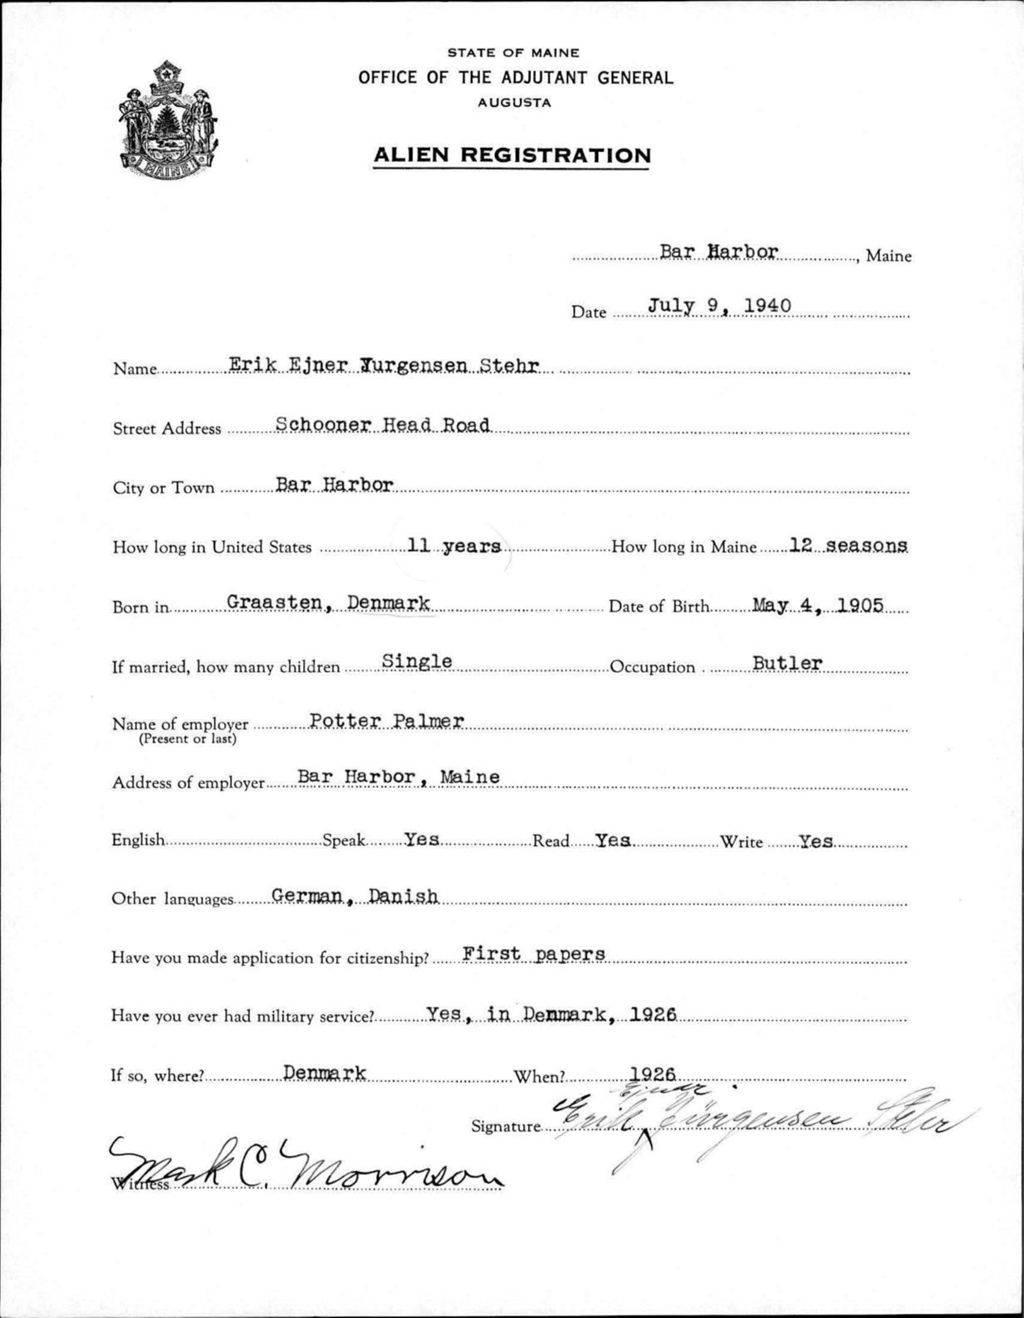 STATE OF MAINE
OFFICE OF THE ADJUTANT GENERAL
AUGUSTA
ALIEN REGISTRATION
MAINE
Bar Harbor, Maine
Date July 9, 1940
Name Erik Ejner Jurgensen Stehr
Street Address Schooner Head Road
City or Town Bar Harbor
How long in United States 11 years How long in Maine 12 seasons
Born in Graasten, Denmark Date of Birth May 4, 1905
If married, how many children Single Occupation Butler
Name of employer Potter Palmer
(Present or last)
Address of employer Bar Harbor, Maine
English Speak Yes Read Yes Write Yes
Other languages German, Danish
Have you made application for citizenship? First papers
Have you ever had military service? Yes, in Denmark, 1926
If so, where? Denmark When? 1926
Ejner
Signature Erik Jürgensen Stehr
Witness Mark C. Morrison